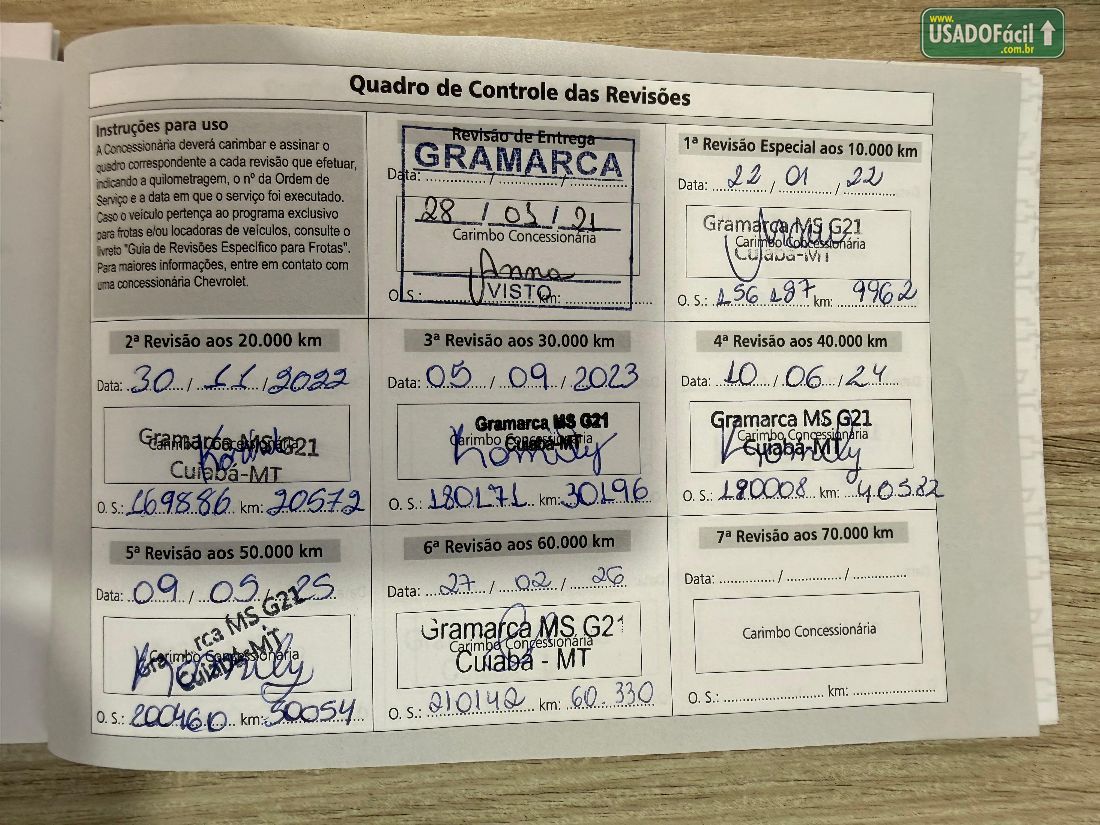 www.
USADOFácil
.com.br
Quadro de Controle das Revisões
Instruções para uso
A Concessionária deverá carimbar e assinar o
quadro correspondente a cada revisão que efetuar,
indicando a quilometragem, o nº da Ordem de
Serviço e a data em que o serviço foi executado.
Caso o veículo pertença ao programa exclusivo
para frotas e/ou locadoras de veículos, consulte o
livreto "Guia de Revisões Específico para Frotas".
Para maiores informações, entre em contato com
uma concessionária Chevrolet.
Revisão de Entrega
GRAMARCA
Data: ............/............/............
28 / 01 / 21
Carimbo Concessionária
Anna
VISTO
O. S.: km:
1ª Revisão Especial aos 10.000 km
Data: 22 / 01 / 22
Gramarca MS G21
Carimbo Concessionária
Cuiabá-MT
O. S.: 156187 km: 9962
2ª Revisão aos 20.000 km
Data: 30 / 11 / 2022
Gramarca MS G21
Carimbo Concessionária
Cuiabá-MT
O. S.: 169886 km: 20572
3ª Revisão aos 30.000 km
Data: 05 / 09 / 2023
Gramarca MS G21
Carimbo Concessionária
Cuiabá-MT
Kamily
O. S.: 180171 km: 30196
4ª Revisão aos 40.000 km
Data: 10 / 06 / 24
Gramarca MS G21
Carimbo Concessionária
Cuiabá-MT
Kamily
O. S.: 190008 km: 40582
5ª Revisão aos 50.000 km
Data: 09 / 05 / 25
Gramarca MS G21
Carimbo Concessionária
Cuiabá-MT
Kamily
O. S.: 200460 km: 50054
6ª Revisão aos 60.000 km
Data: 27 / 02 / 26
Gramarca MS G21
Carimbo Concessionária
Cuiabá - MT
O. S.: 210142 km: 60.330
7ª Revisão aos 70.000 km
Data: ............/............/............
Carimbo Concessionária
O. S.: ............ km: ............